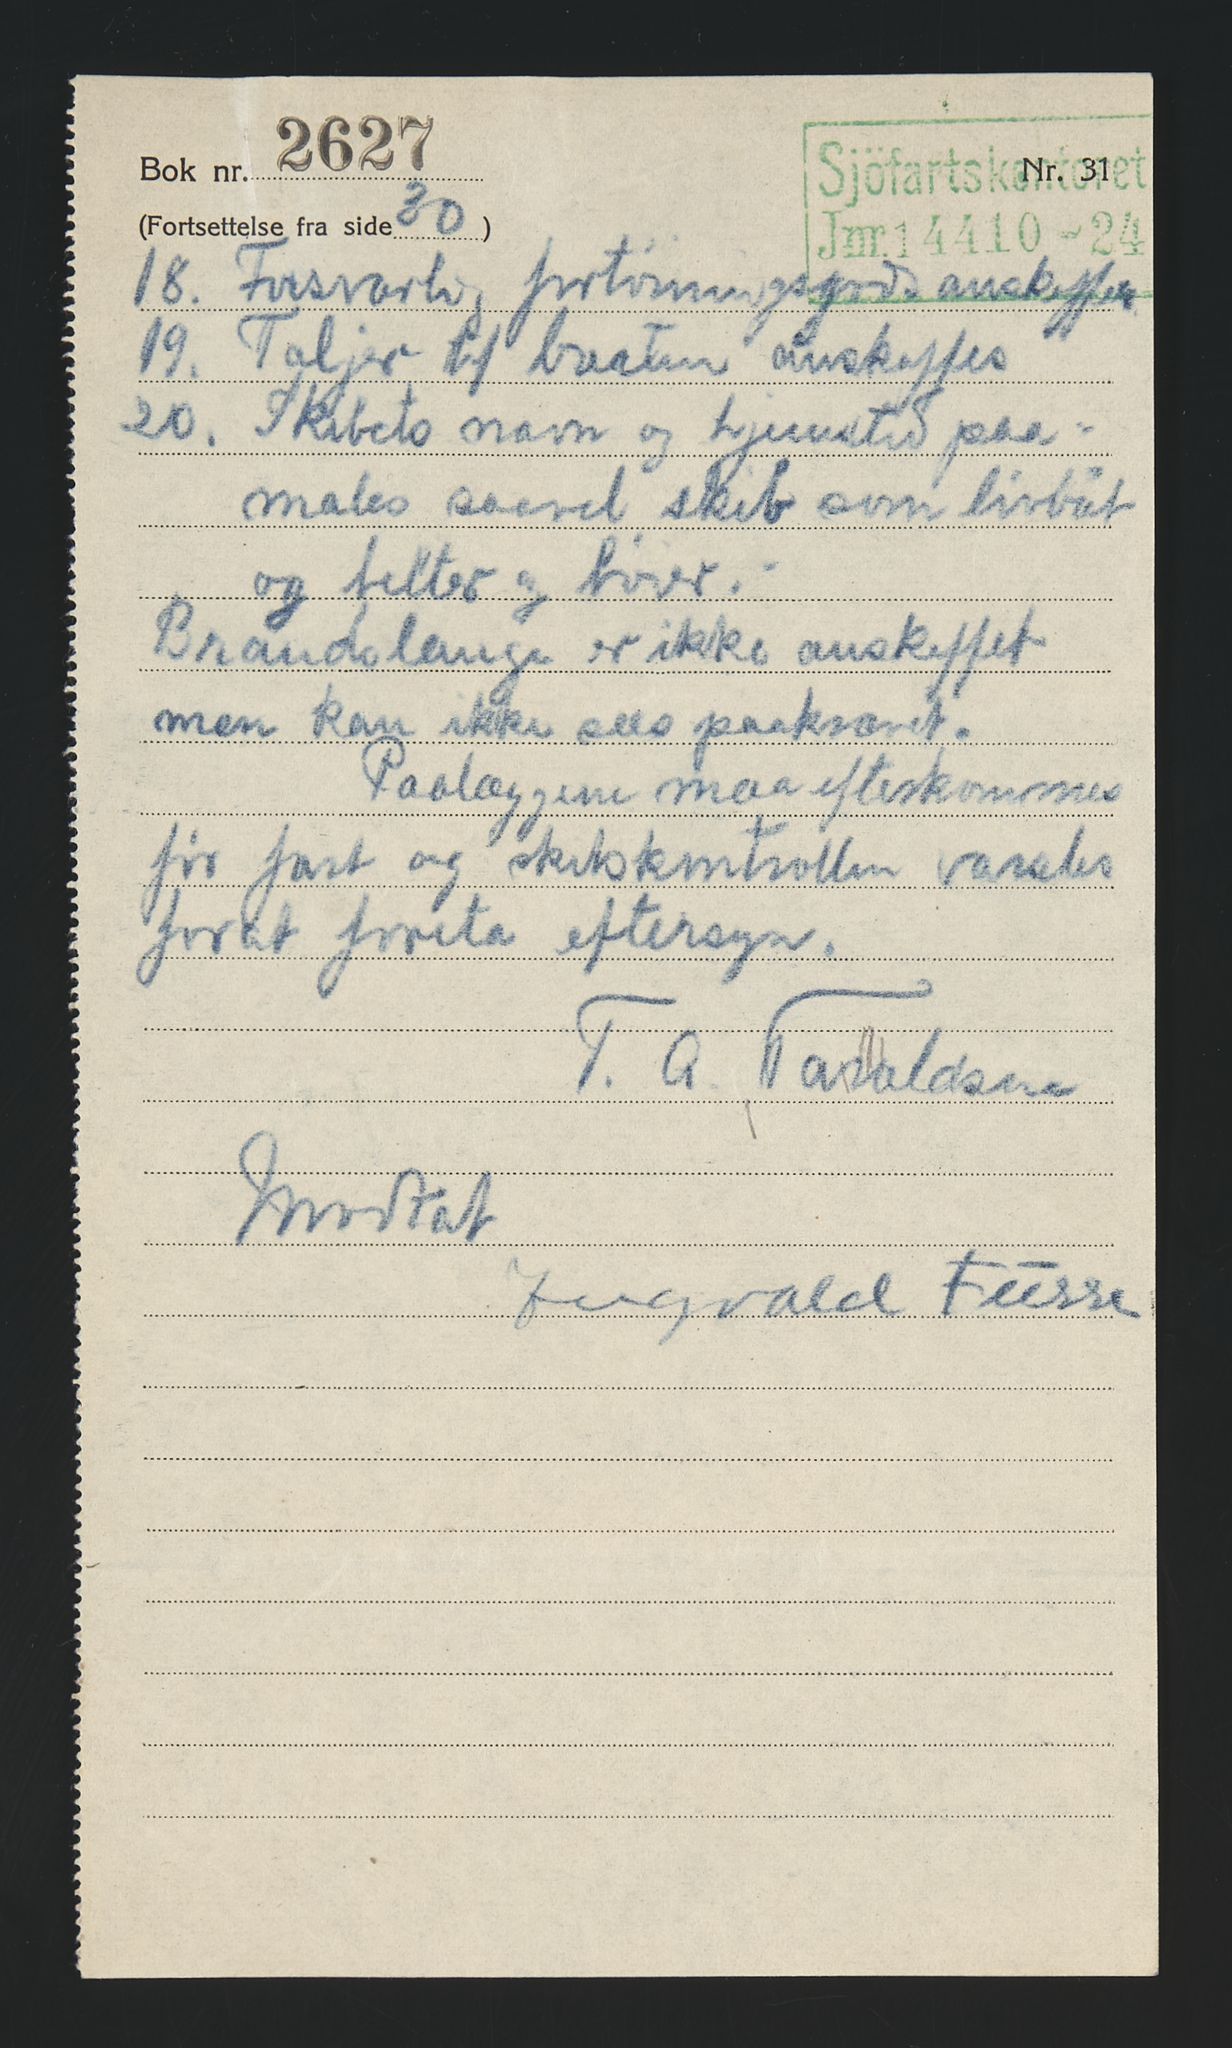 Bok nr. 2627
Nr. 31
Sjöfartskontoret
Jnr. 14410 - 24
(Fortsettelse fra side 30)
18. Forsvarlig fortöiningsgods anskaffes
19. Taljer til baaten anskaffes
20. Skibets navn og hjemsted paa-
males saavel skib som livbåt
og belter og böier.-
Brandslange er ikke anskaffet
men kan ikke sees paakrævet.
Paalæggene maa efterkommes
för fart og skibskontrollen varsles
forat foreta eftersyn.
T. A. Taraldsen
Modtat
Ingvald